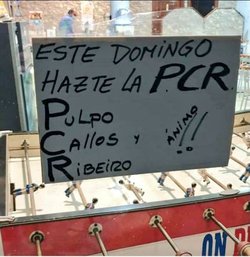 ESTE DOMINGO
HAZTE LA P.C.R.
PULPO
CALLOS Y
RIBEIRO
ÁNIMO!!
ON